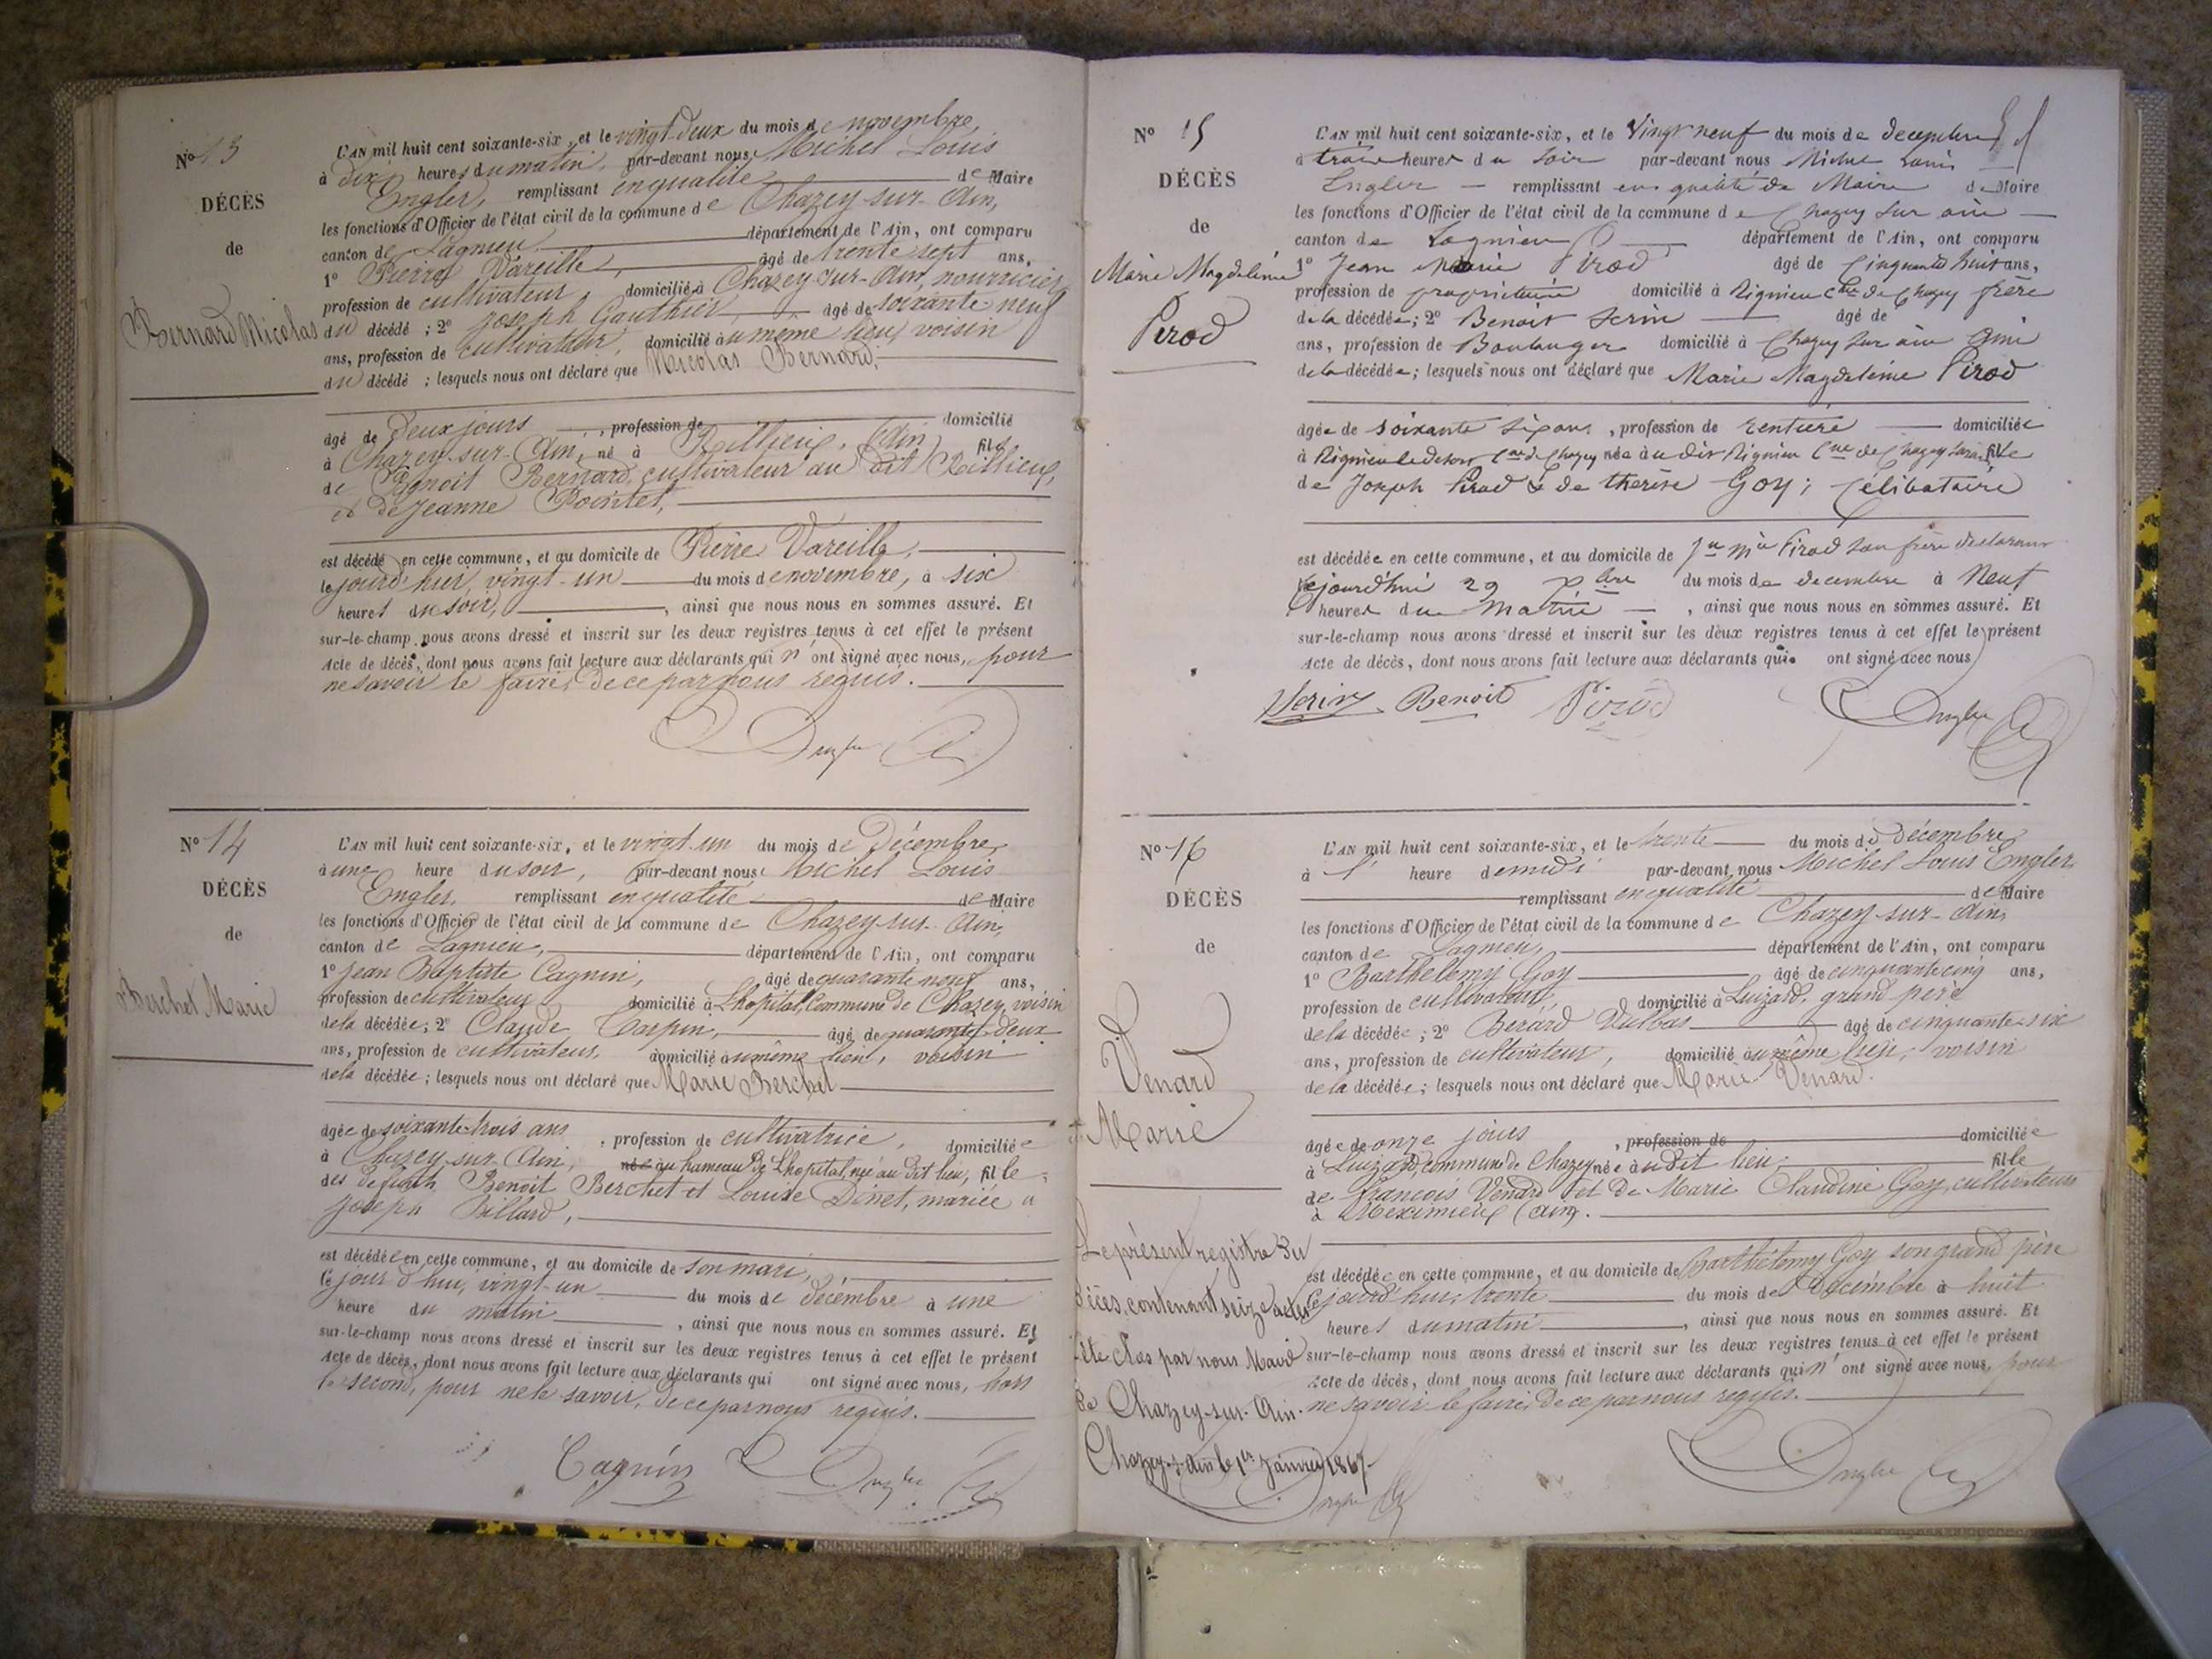 N° 13
DÉCÈS
de
Bernard Nicolas
L'AN mil huit cent soixante-six, et le vingt-deux du mois de novembre,
à dix heures du matin, par-devant nous Michel Louis
Engler, remplissant en qualité de Maire
les fonctions d'Officier de l'état civil de la commune de Chazey-sur-Ain,
canton de Lagnieu département de l'Ain, ont comparu
1° Pierre Vareille, âgé de trente sept ans,
profession de cultivateur, domicilié à Chazey-sur-Ain, nourricier
du décédé ; 2° Joseph Gauthier, âgé de soixante neuf
ans, profession de cultivateur, domicilié au même lieu, voisin
du décédé ; lesquels nous ont déclaré que Nicolas Bernard,
âgé de deux jours , profession de domicilié
à Chazey-sur-Ain, né à Rillieux, (Ain) fils
de Benoit Bernard, cultivateur au dit Rillieux,
et de Jeanne Pointet,
est décédé en cette commune, et au domicile de Pierre Vareille,
le jour d'hier, vingt-un du mois de novembre, à six
heures du soir, , ainsi que nous nous en sommes assuré. Et
sur-le-champ nous avons dressé et inscrit sur les deux registres tenus à cet effet le présent
Acte de décès, dont nous avons fait lecture aux déclarants qui n'ont signé avec nous, pour
ne savoir le faire, de ce par nous requis.
Engler
N° 14
DÉCÈS
de
Berchet Marie
L'AN mil huit cent soixante-six, et le vingt-un du mois de Décembre,
à une heure du soir, par-devant nous Michel Louis
Engler, remplissant en qualité de Maire
les fonctions d'Officier de l'état civil de la commune de Chazey-sur-Ain,
canton de Lagnieu, département de l'Ain, ont comparu
1° Jean Baptiste Cagnin, âgé de quarante neuf ans,
profession de cultivateur domicilié à Lhopital, Commune de Chazey, voisin
de la décédée; 2° Claude Carpin, âgé de quarante-deux
ans, profession de cultivateur, domicilié au même lieu, voisin
de la décédée ; lesquels nous ont déclaré que Marie Berchet
âgée de soixante-trois ans , profession de cultivatrice, domiciliée
à Chazey-sur-Ain, née au hameau de Lhopital, née au dit lieu, fille
des défunts Benoit Berchet et Louise Dinet, mariée à
Joseph Billard,
est décédée en cette commune, et au domicile de son mari,
Ce jour d'hui, vingt-un du mois de décembre à une
heure du matin , ainsi que nous nous en sommes assuré. Et
sur-le-champ nous avons dressé et inscrit sur les deux registres tenus à cet effet le présent
Acte de décès, dont nous avons fait lecture aux déclarants qui ont signé avec nous, hors
le second, pour ne le savoir, de ce par nous requis.
Cagnin Engler
N° 15
DÉCÈS
de
Marie Magdeleine
Pirod
L'AN mil huit cent soixante-six, et le Vingt neuf du mois de decembre
à trois heures du soir par-devant nous Michel Louis
Engler remplissant en qualité de Maire de Maire
les fonctions d'Officier de l'état civil de la commune de Chazey sur ain
canton de Lagnieu département de l'Ain, ont comparu
1° Jean Marie Pirod âgé de Cinquante huit ans,
profession de propriétaire domicilié à Rignieu Cne de Chazey frère
de la décédée; 2° Benoit Serin âgé de
ans, profession de Boulanger domicilié à Chazey sur ain ami
de la décédée; lesquels nous ont déclaré que Marie Magdeleine Pirod
âgée de soixante six ans, profession de rentière domiciliée
à Rignieu le desert Cne de Chazey née au dit Rignieu Cne de Chazey fille
de Joseph Pirod & de thérèse Goy; célibataire
est décédée en cette commune, et au domicile de Jn Mie Pirod son frère declarant
Cejourd'hui 29 Xbre du mois de decembre à Neuf
heures du Matin , ainsi que nous nous en sommes assuré. Et
sur-le-champ nous avons dressé et inscrit sur les deux registres tenus à cet effet le présent
Acte de décès, dont nous avons fait lecture aux déclarants qui ont signé avec nous
Serin Benoit Pirod Engler
N° 16
DÉCÈS
de
Venard
Marie
L'AN mil huit cent soixante-six, et le trente du mois de décembre
à l' heure de midi par-devant nous Michel Louis Engler
remplissant en qualité de Maire
les fonctions d'Officier de l'état civil de la commune de Chazey-sur-Ain,
canton de Lagnieu, département de l'Ain, ont comparu
1° Barthélemy Goy âgé de cinquante cinq ans,
profession de cultivateur, domicilié à Luizard, grand père
de la décédée ; 2° Berard Dulbas âgé de cinquante-six
ans, profession de cultivateur, domicilié au même lieu, voisin
de la décédée; lesquels nous ont déclaré que Marie Venard.
âgée de onze jours , profession de domiciliée
à Luizard, commune de Chazey née au dit lieu, fille
de François Venard et de Marie Claudine Goy, cultivateurs
à Meximieux (Ain).
est décédée en cette commune, et au domicile de Barthélemy Goy son grand père
Ce jourd'hui, trente du mois de Décembre à huit
heures du matin , ainsi que nous nous en sommes assuré. Et
sur-le-champ nous avons dressé et inscrit sur les deux registres tenus à cet effet le présent
Acte de décès, dont nous avons fait lecture aux déclarants qui n'ont signé avec nous, pour
ne savoir le faire, de ce par nous requis.
Engler
Le présent registre du
décès, contenant seize actes
été clos par nous Maire
de Chazey-sur-Ain.
Chazey-s-Ain le 1er Janvier 1867.
Engler